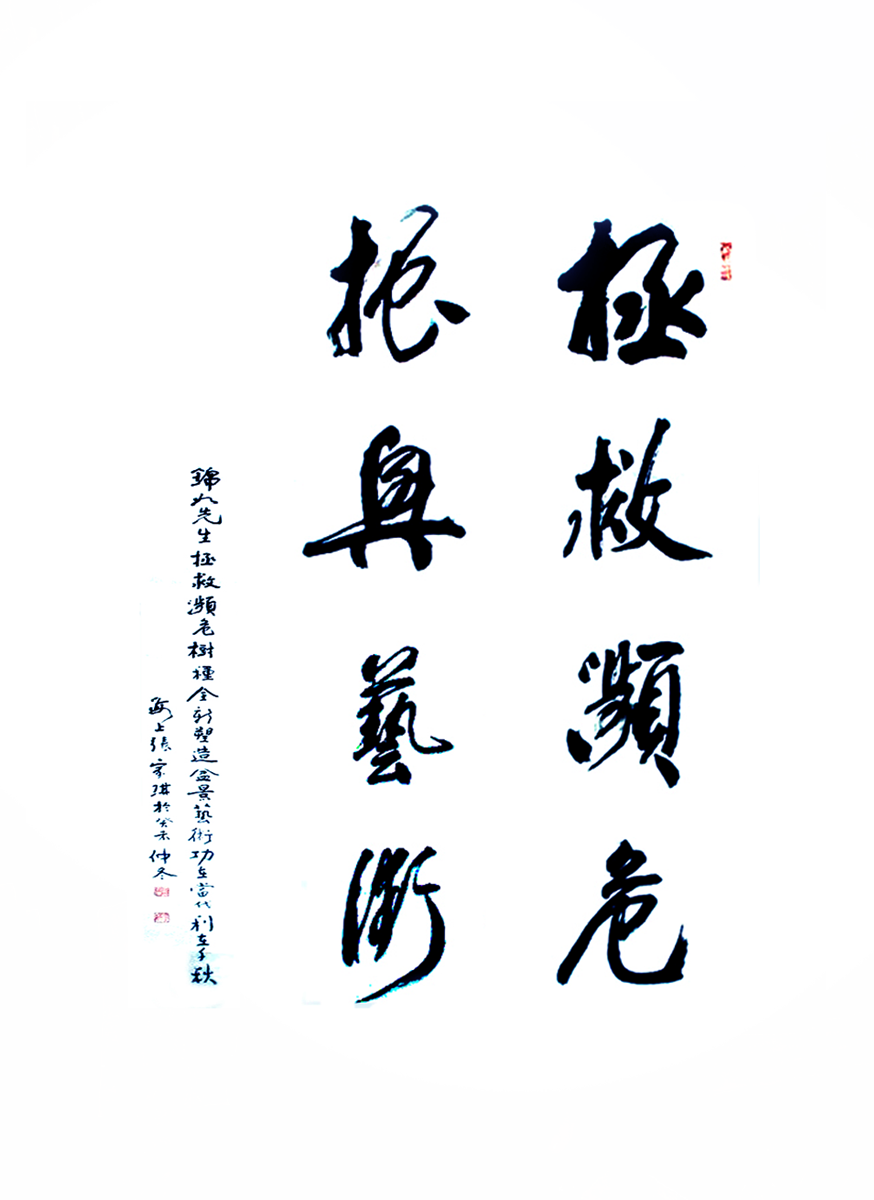 拯救瀕危
振興藝術
錦先生拯救瀕危樹種全新塑造盆景藝術功在當代利在千秋
海上張家琪於癸未仲冬